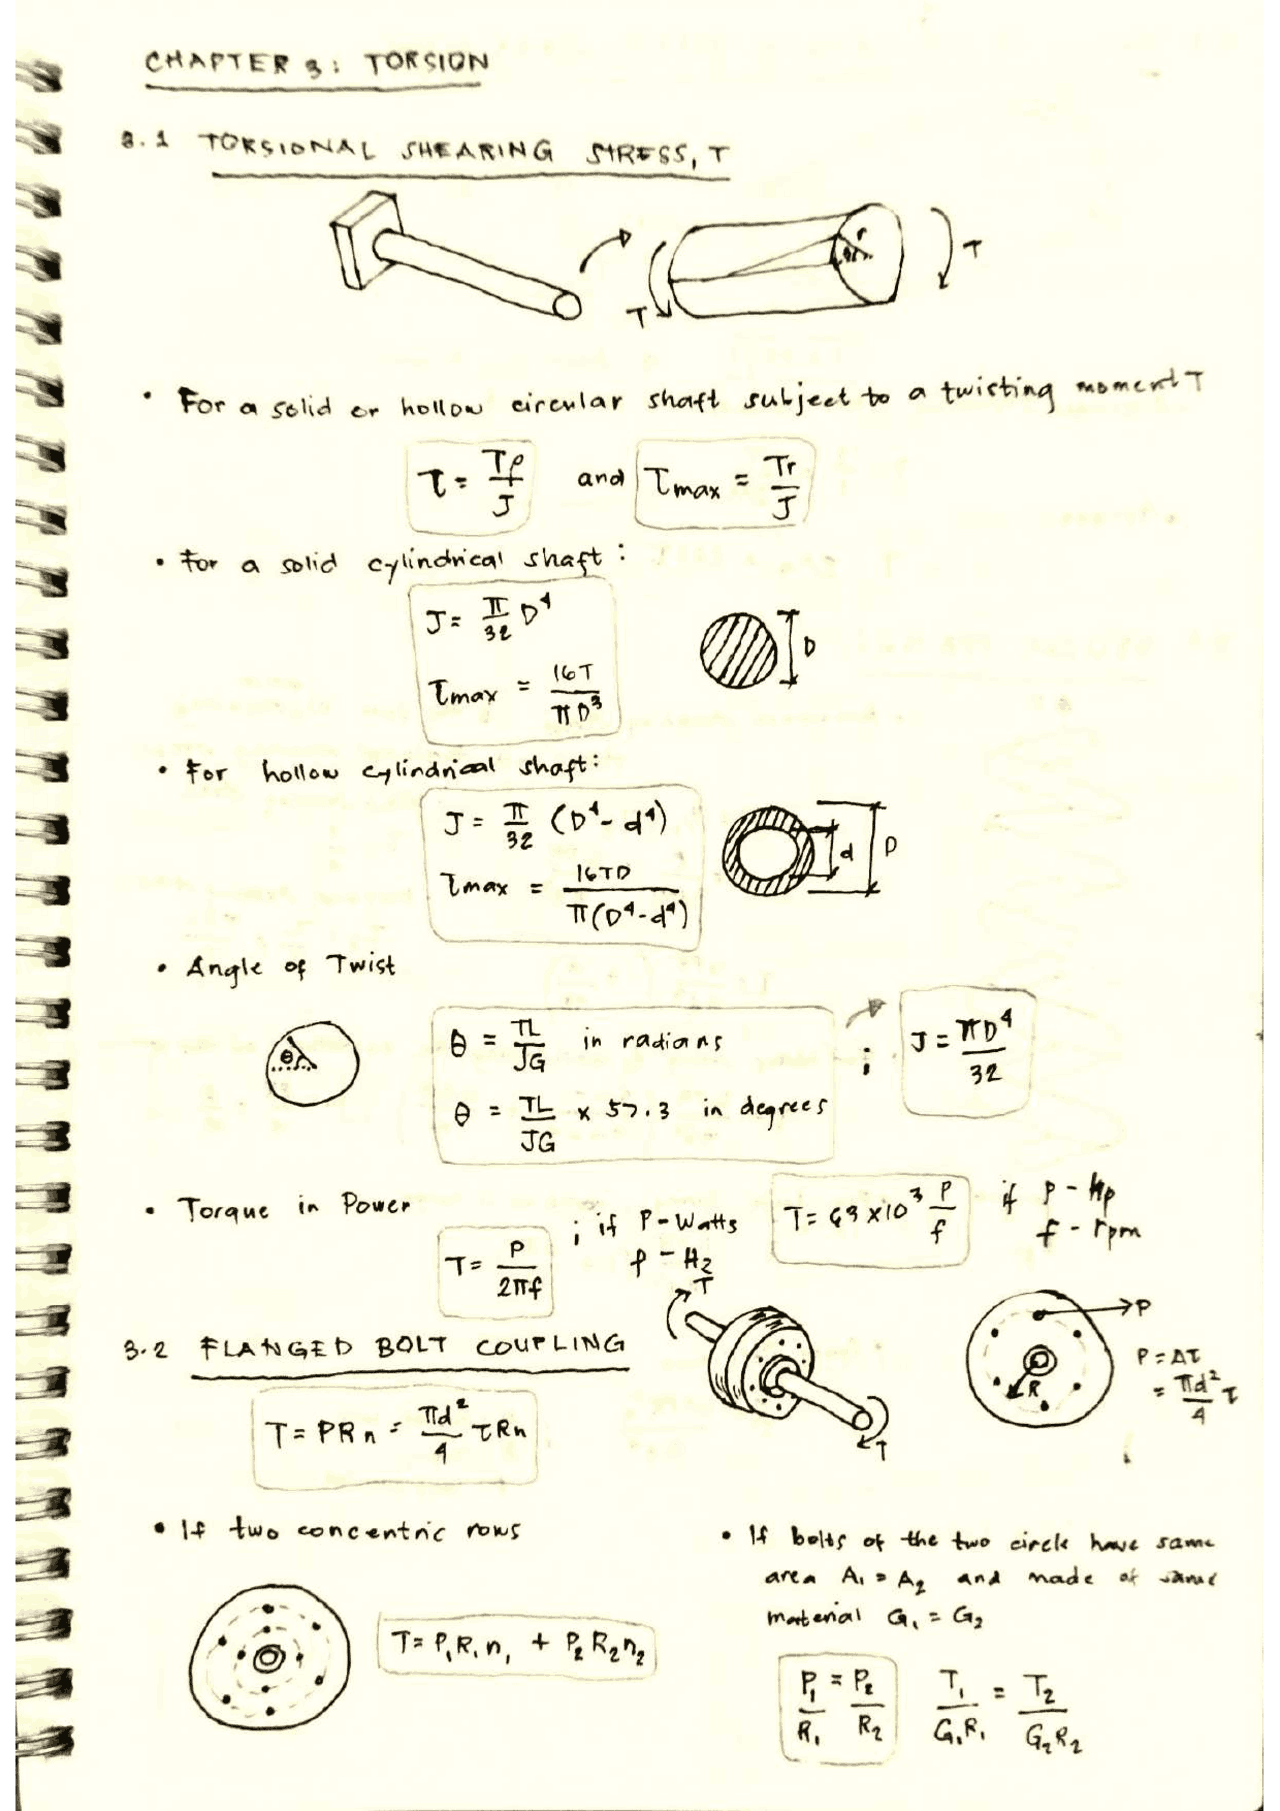 CHAPTER 3: TORSION
3.1 TORSIONAL SHEARING STRESS, τ
r
T
T
• For a solid or hollow circular shaft subject to a twisting moment T
τ = Tρ/J and τmax = Tr/J
• For a solid cylindrical shaft:
J = π/32 D⁴
D
τmax = 16T/πD³
• For hollow cylindrical shaft:
J = π/32 (D⁴-d⁴)
d D
τmax = 16TD/π(D⁴-d⁴)
• Angle of Twist
θ
θ = TL/JG in radians ; J = πD⁴/32
θ = TL/JG x 57.3 in degrees
• Torque in Power
T = P/2πf ; if P-Watts
f-Hz
T = 63x10³ P/f if P-Hp
f-rpm
3.2 FLANGED BOLT COUPLING
T
T
P
R
P = Aτ
= πd²/4 τ
T = PRn = πd²/4 τRn
• If two concentric rows
T = P₁R₁n₁ + P₂R₂n₂
• If bolts of the two circle have same
area A₁ = A₂ and made of same
material G₁ = G₂
P₁/R₁ = P₂/R₂ T₁/G₁R₁ = T₂/G₂R₂